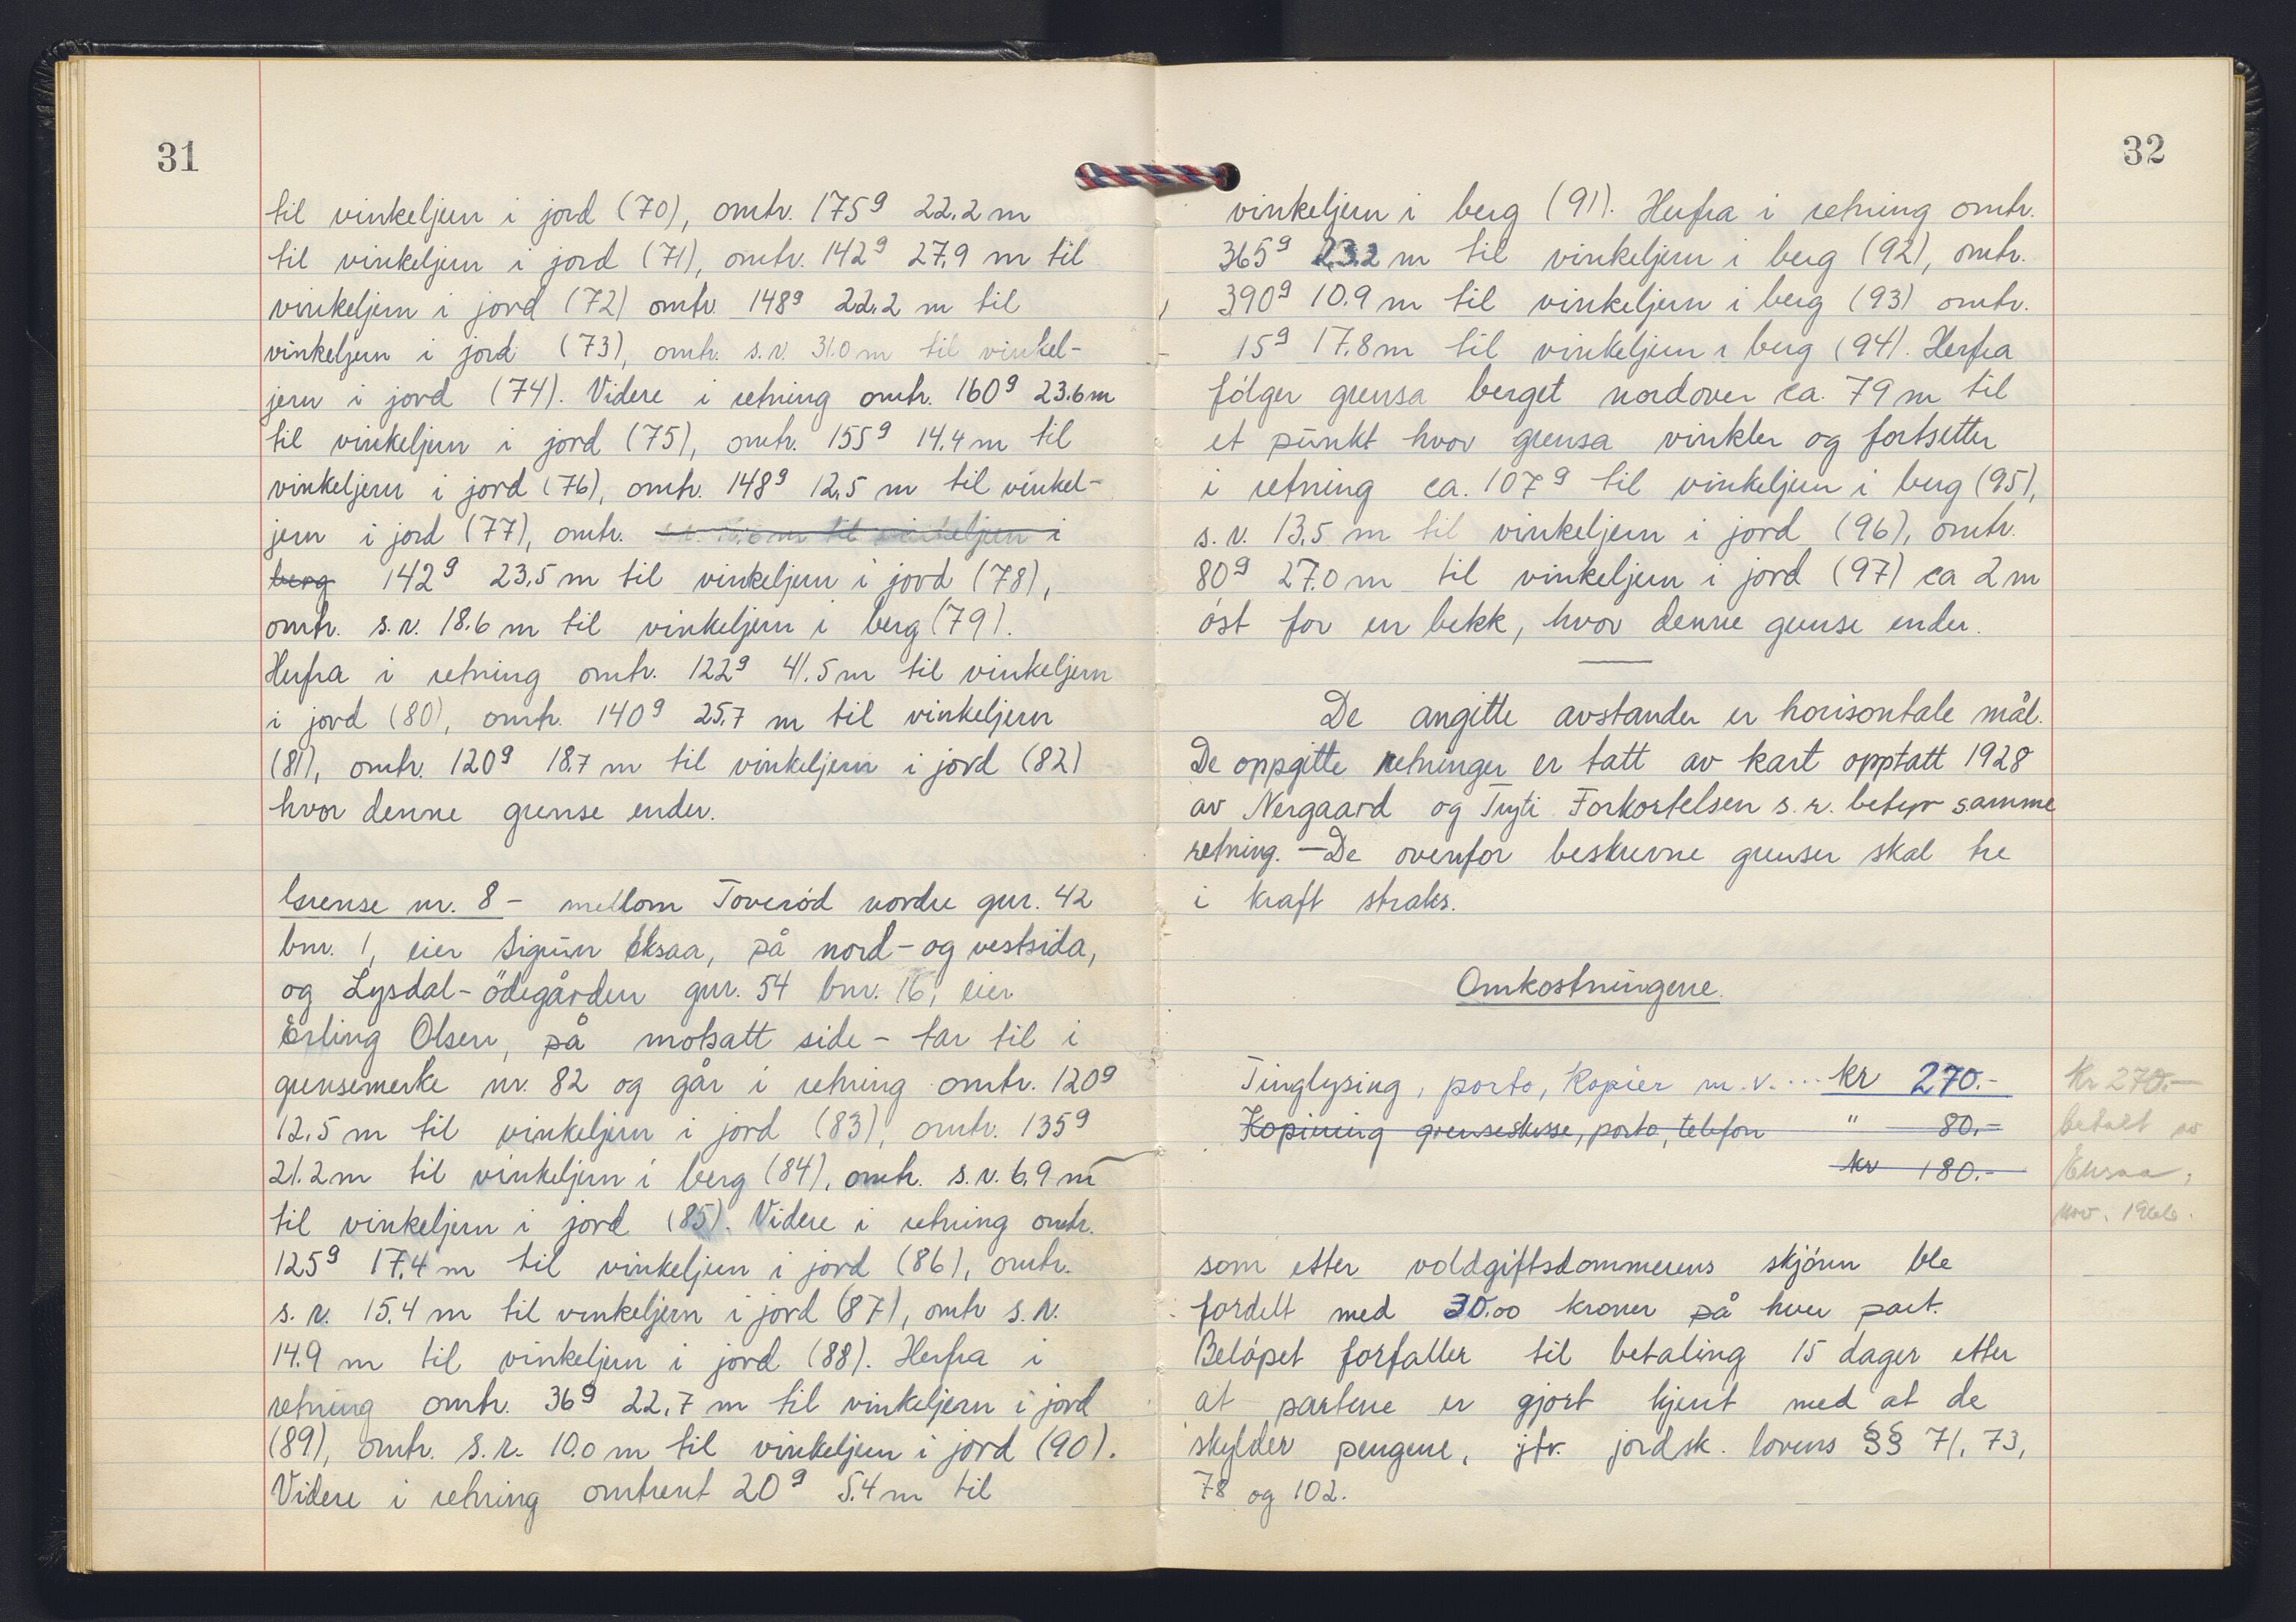 31
til vinkeljern i jord (70), omtr. 175g 22.2 m
til vinkeljern i jord (71), omtr. 142g 27.9 m til
vinkeljern i jord (72) omtr. 148g 22.2 m til
vinkeljern i jord (73), omtr. s.r. 31.0 m til vinkel-
jern i jord (74). Videre i retning omtr. 160g 23.6 m
til vinkeljern i jord (75), omtr. 155g 14.4 m til
vinkeljern i jord (76), omtr. 148g 12.5 m til vinkel-
jern i jord (77), omtr. m til vinkeljern i
berg 142g 23.5 m til vinkeljern i jord (78),
omtr. s.r. 18.6 m til vinkeljern i berg (79).
Herfra i retning omtr. 122g 41.5 m til vinkeljern
i jord (80), omtr. 140g 25.7 m til vinkeljern
(81), omtr. 120g 18.7 m til vinkeljern i jord (82)
hvor denne grense ender.
Grense nr. 8 - mellom Toverød nordre gnr. 42
bnr. 1, eier Sigrun Eksaa, på nord- og vestsida,
og Lysdal-ödegården gnr. 54 bnr. 16, eier
Erling Olsen, på motsatt side - tar til i
grensemerke nr. 82 og går i retning omtr. 120g
12.5 m til vinkeljern i jord (83), omtr. 135g
21.2 m til vinkeljern i berg (84), omtr. s.r. 6.9 m
til vinkeljern i jord (85). Videre i retning omtr.
125g 17.4 m til vinkeljern i jord (86), omtr.
s.r. 15.4 m til vinkeljern i jord (87), omtr s.r.
14.9 m til vinkeljern i jord (88). Herfra i
retning omtr. 36g 22.7 m til vinkeljern i jord
(89), omtr. s.r. 10.0 m til vinkeljern i jord (90).
Videre i retning omtrent 20g 5.4 m til
32
vinkeljern i berg (91). Herfra i retning omtr.
365g 23.2 m til vinkeljern i berg (92), omtr.
390g 10.9 m til vinkeljern i berg (93) omtr.
15g 17.8 m til vinkeljern i berg (94). Herfra
følger grensa berget nordover ca. 79 m til
et punkt hvor grensa vinkler og fortsetter
i retning ca. 107g til vinkeljern i berg (95),
s.r. 13.5 m til vinkeljern i jord (96), omtr.
80g 27.0 m til vinkeljern i jord (97) ca 2 m
øst for en bekk, hvor denne grense ender.
De angitte avstander er horisontale mål.
De oppgitte retninger er tatt av kart opptatt 1928
av Nergaard og Tryti. Forkortelsen s.r. betyr samme
retning. - De ovenfor beskrevne grenser skal tre
i kraft straks.
Omkostningene.
Tinglysing, porto, kopier m.v. ... kr 270.-
Kopiering grenseskisse, porto, telefon " 80.-
kr 180.-
kr 270.-
betalt av
Eksaa,
nov. 1966.
som etter voldgiftsdommerens skjønn ble
fordelt med 30.00 kroner på hver part.
Beløpet forfaller til betaling 15 dager etter
at partene er gjort kjent med at de
skylder pengene, jfr. jordsk. lovens §§ 71, 73,
78 og 102.